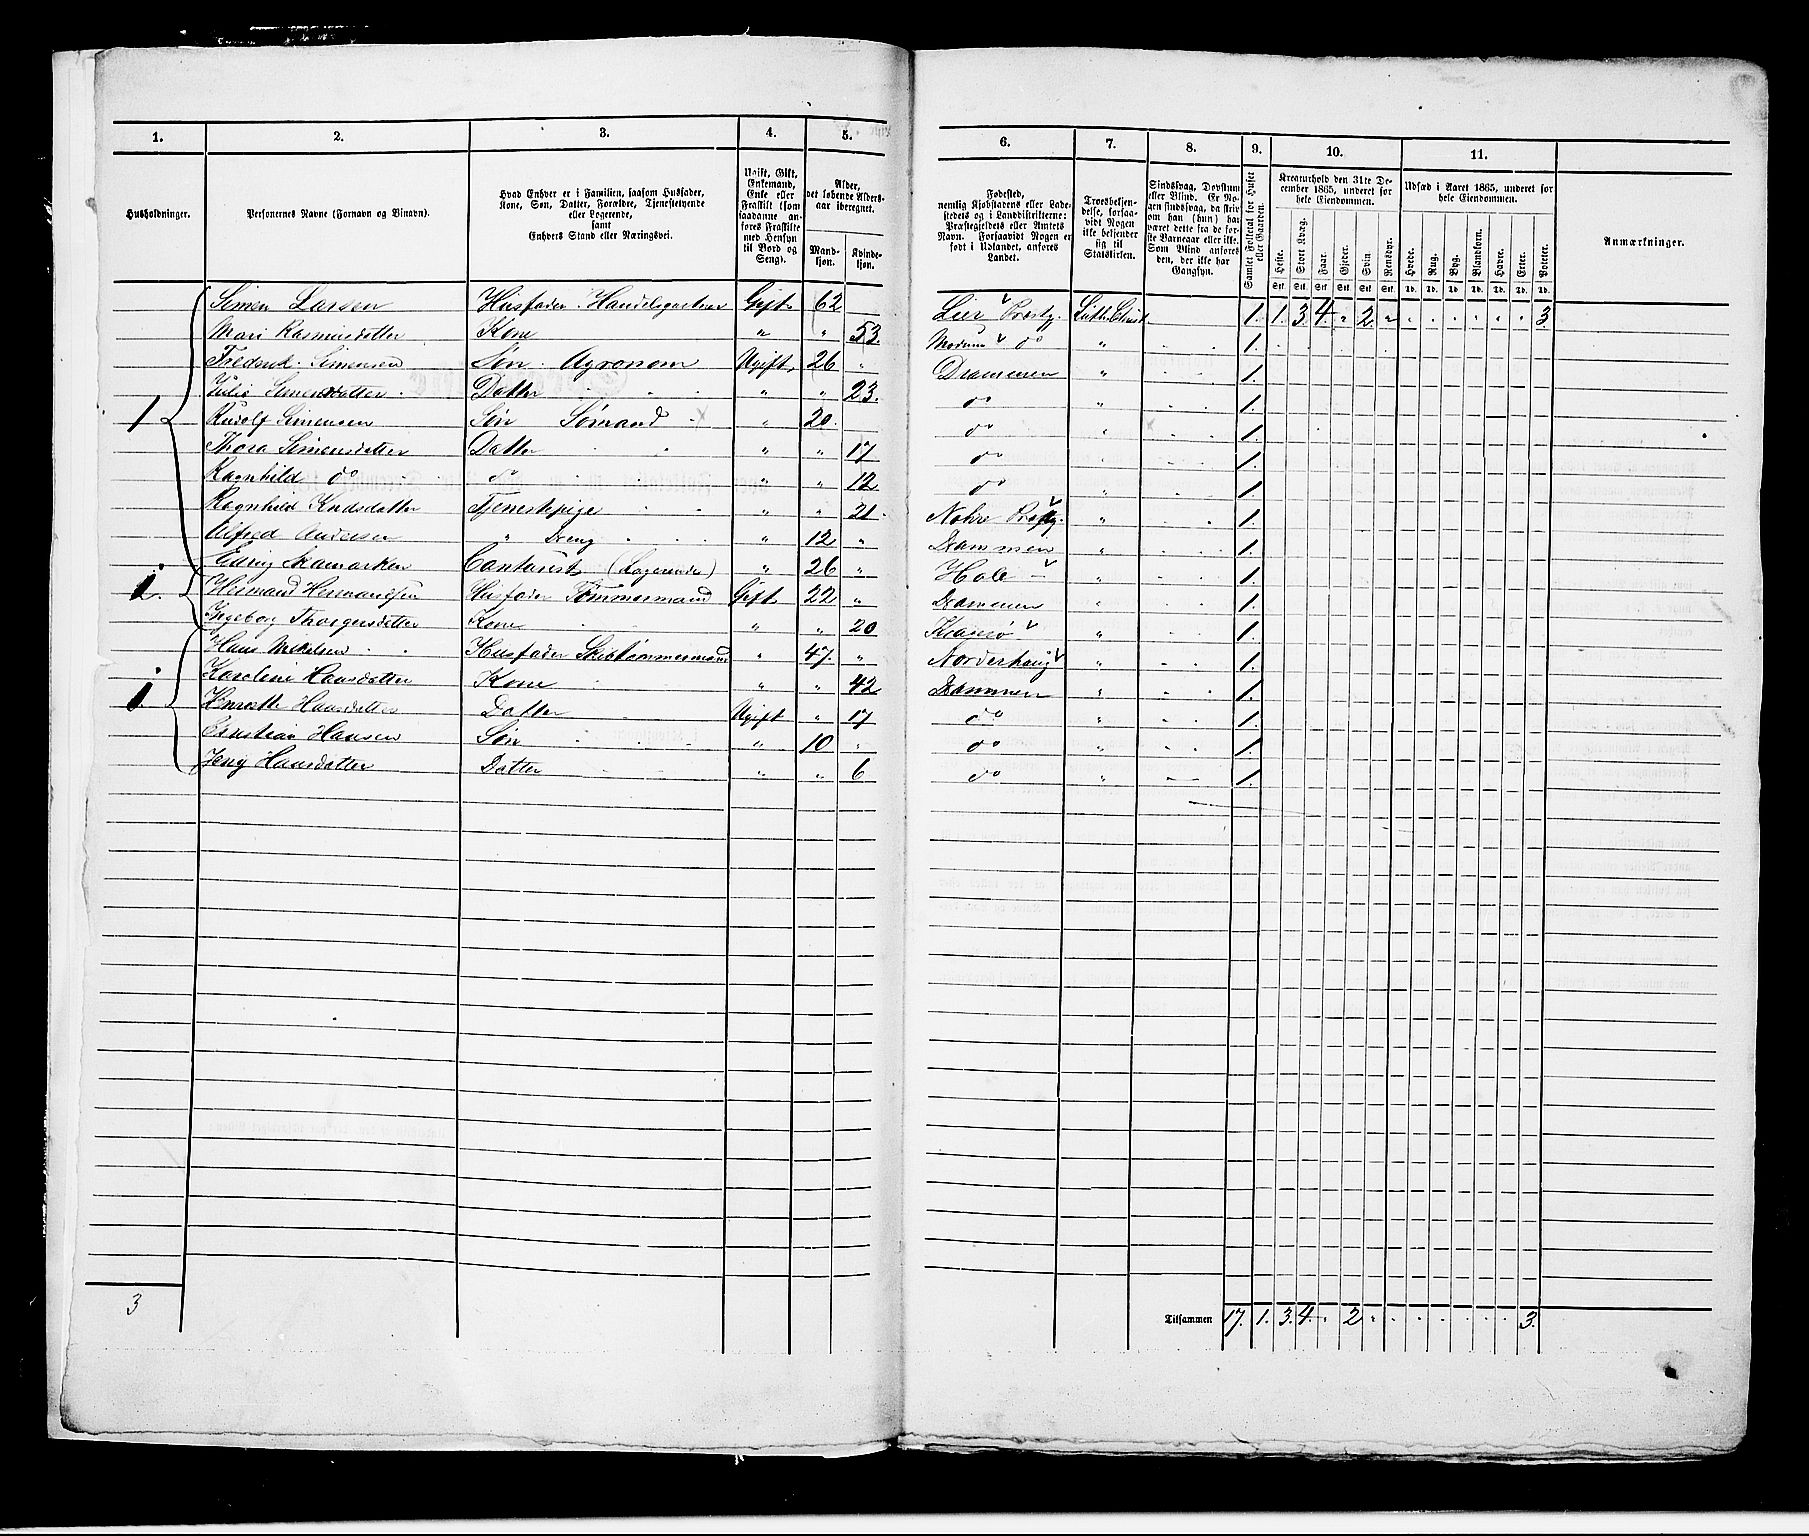 1. 2. 3. 4. 5. 6. 7. 8. 9. 10. 11.
Husholdninger.
Personernes Navne (Fornavn og Tilnavn).
Hvad Enhver er i Familien, saasom Husfader,
Kone, Søn, Datter, Forældre, Tjenestetyende
eller Logerende,
samt
Enhvers Stand eller Næringsvei.
Ugift, Gift,
Enkemand,
Enke eller
Fraskilt (som
saadanne an-
føres Fraskilte
med Hensyn
til Bord og
Seng).
Alder,
det løbende Alders-
aar iberegnet.
Mand-
kjøn.
Kvinde-
kjøn.
Fødested,
nemlig Kjøbstadens eller Lade-
stedets og i Landdistrikterne:
Præstegjeldets eller Amtets
Navn. Forsaavidt Nogen er
født i Udlandet, anføres
Landet.
Troesbekjen-
delse, forsaa-
vidt Nogen
ikke bekjender
sig til
Statskirken.
Sindssvag, Døvstum
eller Blind. Er No-
gen sindssvag, da skri-
ves om han (hun) har
været dette fra de før-
ste Barneaar eller ikke.
Som Blind anføres
den, der ikke har
Gangsyn.
Samlet Folketal for Huset
eller Gaarden.
Kreaturhold den 31te De-
cember 1865, underet for
hele Eiendommen.
Heste. Stort Kvæg. Faar. Gjeder. Svin. Rensdyr.
Stk. Stk. Stk. Stk. Stk. Stk.
Udsæd i Aaret 1865, underet for
hele Eiendommen.
Hvede. Rug. Byg. Blandkorn. Havre. Erter. Poteter.
Td. Td. Td. Td. Td. Td. Td.
Anmærkninger.
Simen Larsen Husfader. Handelsgartner Gift 62 Lier Præstg. Luth. Christ. 1. 1. 3. 4. " 2. " 3
Mari Rasmusdatter Kone " " 53. Modum do " 1.
Fredrik Simensen Søn. Agronom Ugift, 26 " Drammen " 1.
Julie Simensdatter Datter " " 23. do " 1.
1 Rudolf Simensen Søn Sømand " 20. do " 1.
Thora Simensdatter Datter " " 17 do " 1.
Ragnhild do do " " 12 do " 1.
Ragnhild Knudsdatter Tjenestepige " " 21. Præstg. " 1.
Alfred Andersen " Dreng " 12 " Drammen " 1.
(Logerende) " 26 " Hole " 1.
Hermand Hermandsen Husfader Tømmermand Gift 22 " Drammen " 1.
Ingeborg Thorgersdatter Kone " " 20 Kragerø " 1.
Hans Mikelsen Husfader Skibtømmermand " 47. " Norderhaug " 1.
Karoline Hansdatter Kone " " 42 Drammen " 1.
Hansdatter Datter Ugift " 17 do " 1.
Christian Hansen Søn " 10 " do " 1.
Jeny Hansdatter Datter " " 6 do " 1.
3 Tilsammen 17. 1. 3. 4. " 2 " 3.